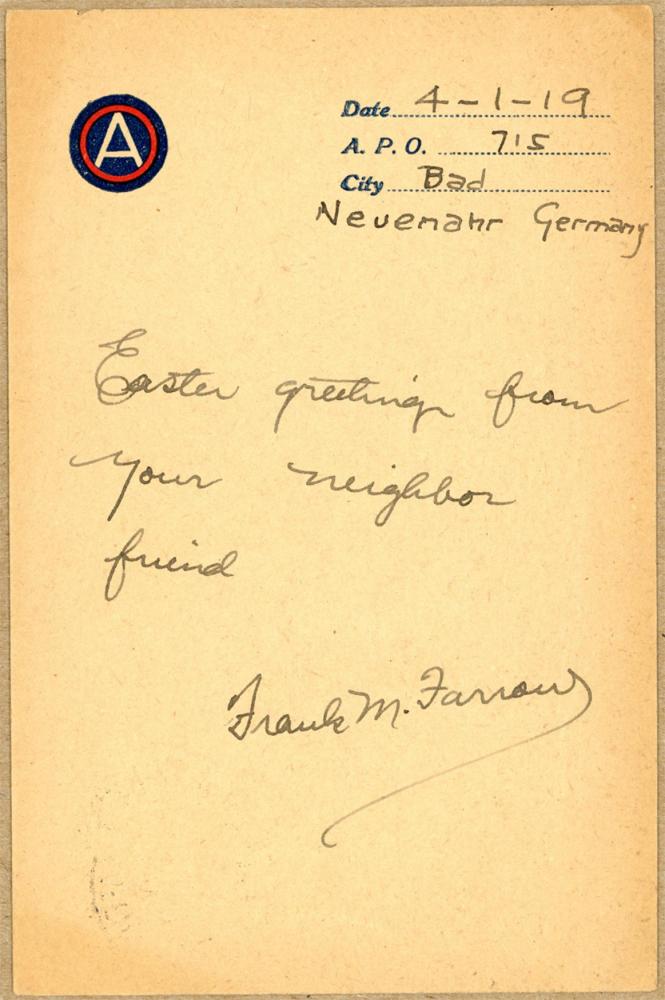 A
Date 4-1-19
A. P. O. 715
City Bad
Neuenahr Germany
Easter greetings from
your neighbor
friend
Frank M. Farrow